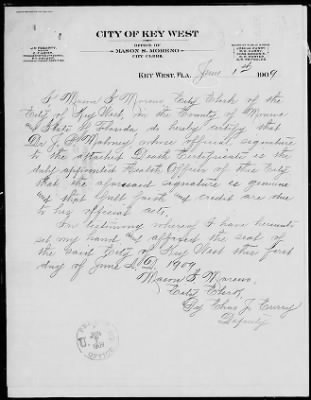 CITY OF KEY WEST
OFFICE OF
MASON S. MORENO
CITY CLERK
KEY WEST, FLA. June 1st 1909
I Mason S Moreno City Clerk of the
City of Key West, in the County of Monroe
& State of Florida do hereby certify that
Dr J. Maloney whose official signature
to the attached Death Certificate is the
duly appointed Health Officer of this City
that the aforesaid signature is genuine
& that full faith & credit are due
to his official acts.
In testimony whereof I have hereunto
set my hand & affixed the seal of
the said City of Key West this first
day of June 1909
Mason S Moreno,
City Clerk,
By Chas J. Curry
Deputy